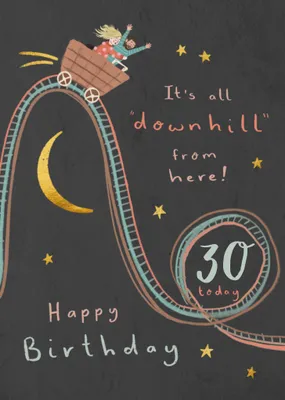 It's all
"downhill"
from
here!
30
today
Happy
Birthday